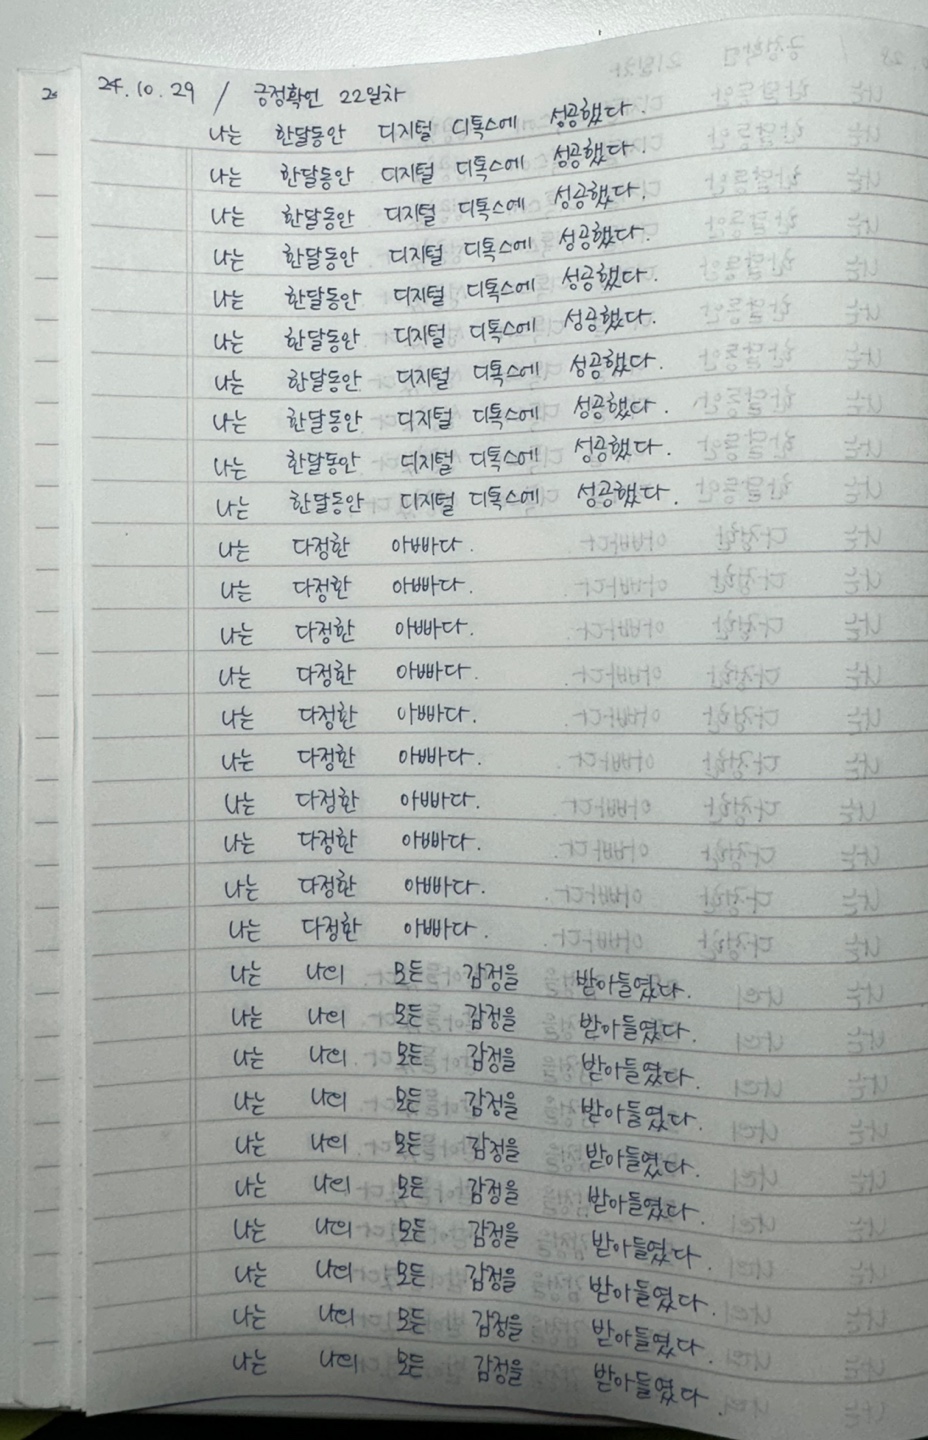 24.10.29 / 긍정확언 22일차
나는 한달동안 디지털 디톡스에 성공했다.
나는 한달동안 디지털 디톡스에 성공했다.
나는 한달동안 디지털 디톡스에 성공했다.
나는 한달동안 디지털 디톡스에 성공했다.
나는 한달동안 디지털 디톡스에 성공했다.
나는 한달동안 디지털 디톡스에 성공했다.
나는 한달동안 디지털 디톡스에 성공했다.
나는 한달동안 디지털 디톡스에 성공했다.
나는 한달동안 디지털 디톡스에 성공했다.
나는 한달동안 디지털 디톡스에 성공했다.
나는 다정한 아빠다.
나는 다정한 아빠다.
나는 다정한 아빠다.
나는 다정한 아빠다.
나는 다정한 아빠다.
나는 다정한 아빠다.
나는 다정한 아빠다.
나는 다정한 아빠다.
나는 다정한 아빠다.
나는 다정한 아빠다.
나는 나의 모든 감정을 받아들였다.
나는 나의 모든 감정을 받아들였다.
나는 나의 모든 감정을 받아들였다.
나는 나의 모든 감정을 받아들였다.
나는 나의 모든 감정을 받아들였다.
나는 나의 모든 감정을 받아들였다.
나는 나의 모든 감정을 받아들였다.
나는 나의 모든 감정을 받아들였다.
나는 나의 모든 감정을 받아들였다.
나는 나의 모든 감정을 받아들였다.